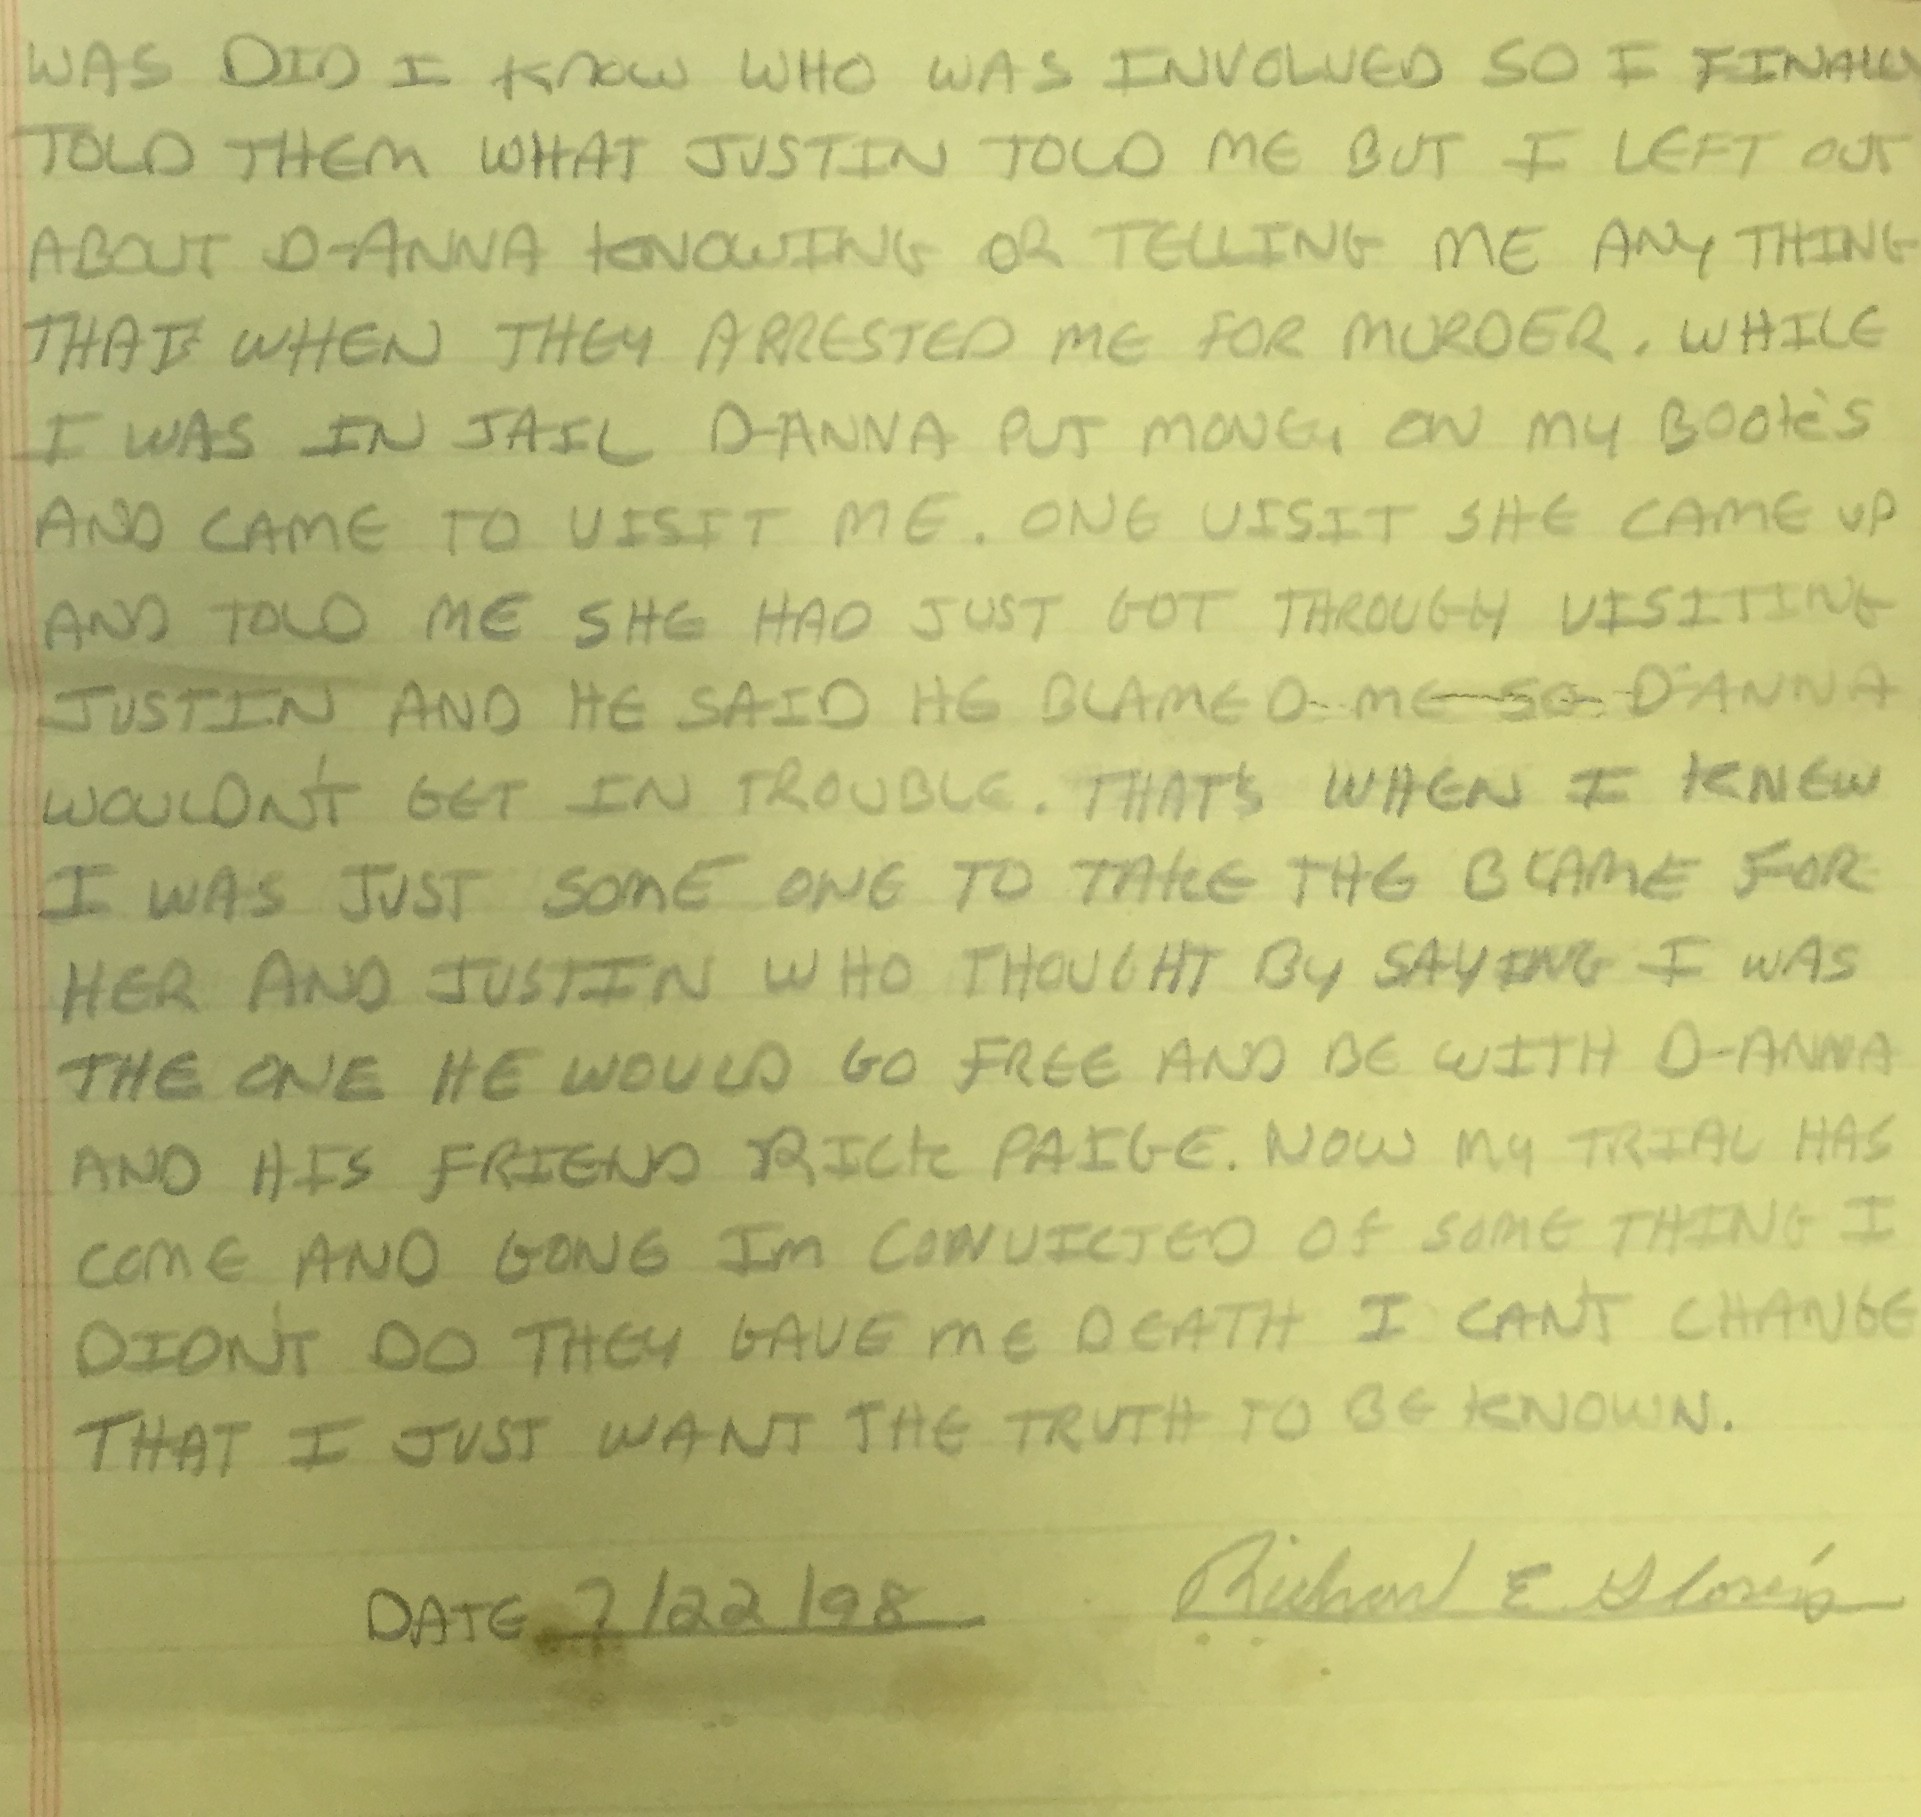 WAS DID I KNOW WHO WAS INVOLVED SO I FINALLY
TOLD THEM WHAT JUSTIN TOLD ME BUT I LEFT OUT
ABOUT D-ANNA KNOWING OR TELLING ME ANY THING
THAT WHEN THEY ARRESTED ME FOR MURDER. WHILE
I WAS IN JAIL D-ANNA PUT MONEY ON MY BOOK'S
AND CAME TO VISIT ME. ONE VISIT SHE CAME UP
AND TOLD ME SHE HAD JUST GOT THROUGH VISITING
JUSTIN AND HE SAID HE BLAMED ME SO D-ANNA
WOULDN'T GET IN TROUBLE. THAT'S WHEN I KNEW
I WAS JUST SOME ONE TO TAKE THE BLAME FOR
HER AND JUSTIN WHO THOUGHT BY SAYING I WAS
THE ONE HE WOULD GO FREE AND BE WITH D-ANNA
AND HIS FRIEND RICK PAIGE. NOW MY TRIAL HAS
COME AND GONE IM CONVICTED OF SOME THING I
DIDN'T DO THEY GAVE ME DEATH I CAN'T CHANGE
THAT I JUST WANT THE TRUTH TO BE KNOWN.
DATE 7/22/98 Richard E